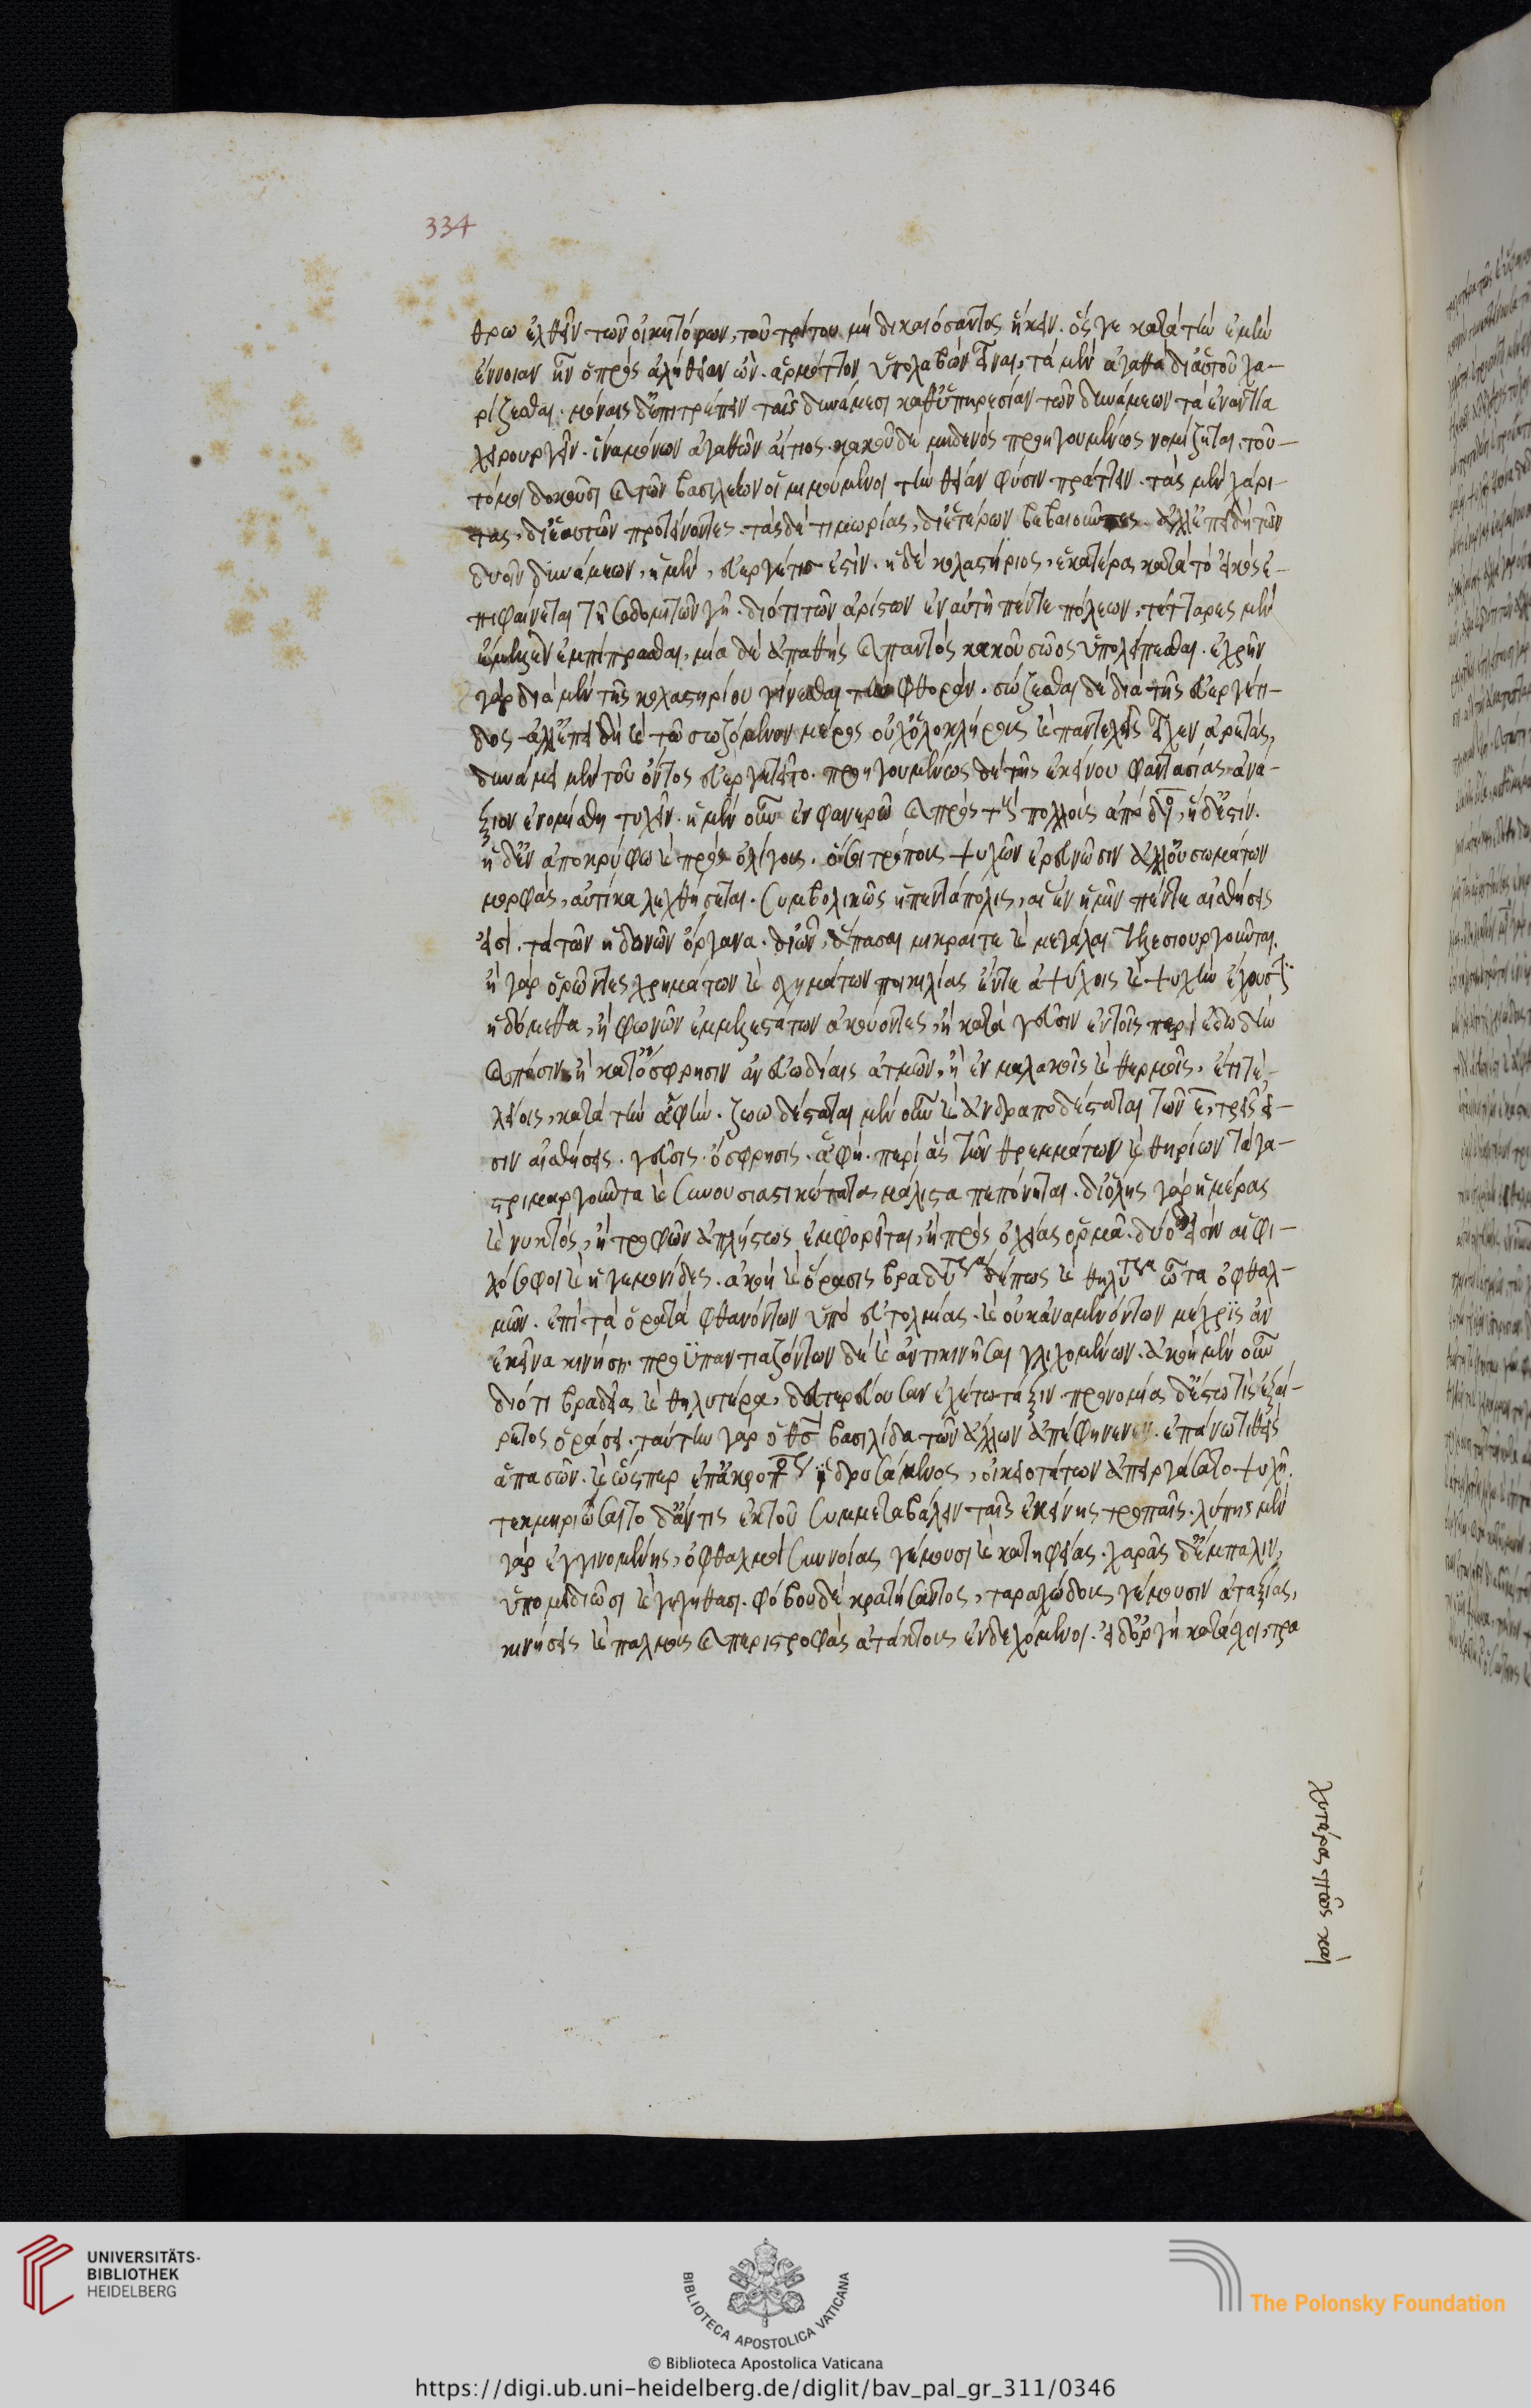 334
θρω ἐλθεῖν τῶν οἰκητόρων, τοῦ τρίτου μὴ δικαιόσαντος ἥκειν. ὅς γε κατὰ τὴν ἐμὴν
ἔννοιαν ἦν ὁ πρὸς ἀλήθειαν ὤν. ἁρμόττον ὑπολαβὼν εἶναι, τὰ μὲν ἀγαθὰ δι' ἁυτοῦ χα-
ρίζεσθαι. μόναις δ' ἐπιτρέπειν ταῖς δυνάμεσι καθ' ὑπηρεσίαν τῶν δυνάμεων τὰ ἐναντία
χειρουργεῖν. ἵνα μόνων ἀγαθῶν αἴτιος. κακοῦ δὲ μηδενὸς προηγουμένως νομίζηται. τοῦ-
τό μοι δοκοῦσι καὶ τῶν βασιλέων οἱ μιμούμενοι τὴν θείαν φύσιν πράττειν. τὰς μὲν χάρι-
τας, δι' ἑαυτῶν προτείνοντες. τὰς δὲ τιμωρίας, δι' ἑτέρων βεβαιοῦντες. ἀλλ' ἐπειδὴ τῶν
δυοῖν δυνάμεων, ἡ μὲν, εὐεργέτις ἐστίν. ἡ δὲ κολαστήριος, ἑκατέρα κατὰ τὸ εἰκὸς ἐ-
πιφαίνεται τῇ σοδομιτῶν γῇ. διότι τῶν ἀρίστων ἐν αὐτῇ πέντε πόλεων, τέτταρες μὲν
ἔμελλον ἐμπίπρασθαι, μία δὲ ἀπαθὴς καὶ παντὸς κακοῦ σῶος ὑπολείπεσθαι. ἐχρῆν
γὰρ διὰ μὲν τῆς κολαστηρίου γίνεσθαι τὴν φθοράν. σώζεσθαι δὲ διὰ τῆς εὐεργέτι-
δος. ἀλλ' ἐπειδὴ καὶ τὸ σωζόμενον μέρος οὐχ' ὁλοκλήρους καὶ παντελεῖς εἶχεν ἀρετάς,
δυνάμει μὲν τοῦ ὄντος εὐεργετεῖτο. προηγουμένως δὲ τῆς ἐκείνου φαντασίας ἀνά-
ξιον ἐνομίσθη τυχεῖν. ἡ μὲν οὖν ἐν φανερῷ καὶ πρὸς τοὺς πολλοὺς ἀπόδο, ἥδ' ἐστίν.
ἡ δ' ἐν ἀποκρύφω καὶ πρὸς ὀλίγους. ὅσοι τρόπους ψυχῶν ἐρευνῶσιν ἀλλ' οὐ σωμάτων
μορφάς, αὐτίκα λεχθήσεται. συμβολικῶς ἡ πεντάπολις, αἱ ἐν ἡμῖν πέντε αἰσθήσεις
εἰσί. τὰ τῶν ἡδονῶν ὄργανα. δι' ὧν, ἅπασαι μικραί τε καὶ μεγάλαι τελεσιουργοῦνται.
ἢ γὰρ ὁρῶντες χρημάτων καὶ σχημάτων ποικιλίας ἔν τε ἀψύχοις καὶ ψυχὴν ἔχουσιν
ἡδόμεθα, ἢ φωνῶν ἐμμελεστάτων ἀκούοντες, ἢ κατὰ γεῦσιν ἐν τοῖς περὶ ἐδωδὴν
καὶ πόσιν, ἢ κατ' ὄσφρησιν ἀν εὐωδίαις ἀτμῶν, ἢ ἐν μαλακοῖς καὶ θερμοῖς, ἔτι τὲ
λείοις, κατὰ τὴν ἁφήν. ζωωδέσταται μὲν οὖν καὶ ἀνδραποδέσταται τῶν ε, τρεῖς εἰ-
σιν αἰσθήσεις. γεῦσις. ὄσφρησις. ἁφή. περὶ ἃς τῶν θρεμμάτων καὶ θηρίων τὰ γα-
στριμαργοῦντα καὶ συνουσιαστικώτατα μάλιστα πεπόνηται. δι' ὅλης γὰρ ἡμέρας
καὶ νυκτός, ἢ τροφῶν ἀπλήστως ἐμφορεῖται, ἢ πρὸς ὀχείας ὁρμᾷ. δύο δ' εἰσὶν αἱ φι-
λόσοφοι καὶ ἡγεμονίδες. ἀκοὴ καὶ ὅρασις βραδύτερα δέ πως καὶ θηλύτερα ὦτα ὀφθαλ-
μῶν. ἐπὶ τὰ ὁρατὰ φθανόντων ὑπὸ εὐτολμίας. καὶ οὐκ ἀναμενόντων μέχρις ἂν
ἐκεῖνα κινήσῃ. προϋπαντιαζόντων δὲ καὶ ἀντικινῆσαι γλιχομένων. ἀκοὴ μὲν οὖν
διότι βραδεῖα καὶ θηλυτέρα, δευτερεύουσαν ἐχέτω τάξιν. προνομία δ' ἔστω τίς ἐξαί-
ρετος ὁράσει. ταύτην γὰρ ὁ θς βασιλίδα τῶν ἄλλων ἀπέφηνεν. ἐπάνω τιθεὶς
ἁπασῶν. καὶ ὥσπερ ἐπ' ἀκροπόλεως ἱδρυσάμενος, οἰκειοτάτων ἀπειργάσατο ψυχῇ.
τεκμηριώσαιτο δ' ἄν τις ἐκ τοῦ συμμεταβάλλειν ταῖς ἐκείνης τροπαῖς. λύπης μὲν
γὰρ ἐγγινομένης, ὀφθαλμοὶ συννοίας γέμουσι καὶ κατηφείας. χαρᾶς δ' ἔμπαλιν,
ὑπομειδιῶσι καὶ γεγήθασι. φόβου δὲ κρατήσαντος, ταραχώδους γέμουσιν ἀταξίας,
κινήσεις καὶ παλμοὺς καὶ περιστροφὰς ἀτάκτους ἐνδεχόμενοι. εἰ δ' ὀργὴ κατάσχοι, τρα
χυτέρας πῶς καὶ
UNIVERSITÄTS-
BIBLIOTHEK
HEIDELBERG
BIBLIOTECA APOSTOLICA VATICANA
The Polonsky Foundation
© Biblioteca Apostolica Vaticana
https://digi.ub.uni-heidelberg.de/diglit/bav_pal_gr_311/0346